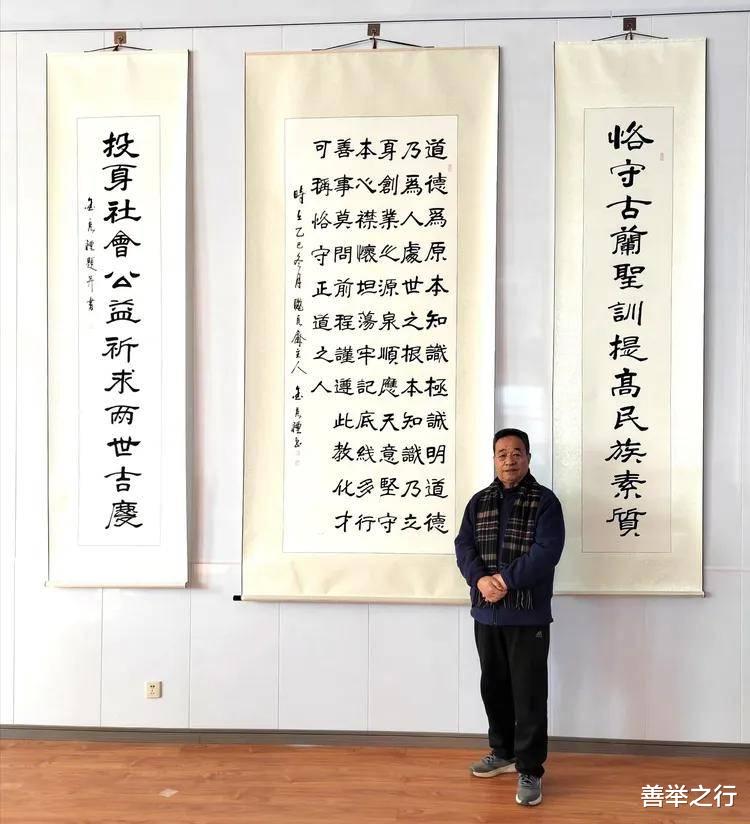 恪守古蘭聖訓提髙民族素質
道德爲原本知識極誠明道德
乃爲人處世之根本知識乃立
身創業之源泉順應天意堅守
本心襟懷坦蕩牢記底线多行
善事莫問前程謹遵此教化才
可稱恪守正道之人
時在乙巳冬月 主人
投身社會公益祈求两世吉慶
題并書
善举之行